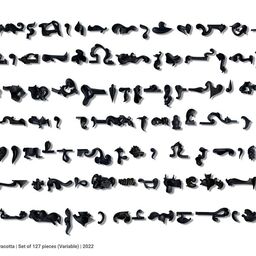 racotta | Set of 127 pieces (Variable) | 2022